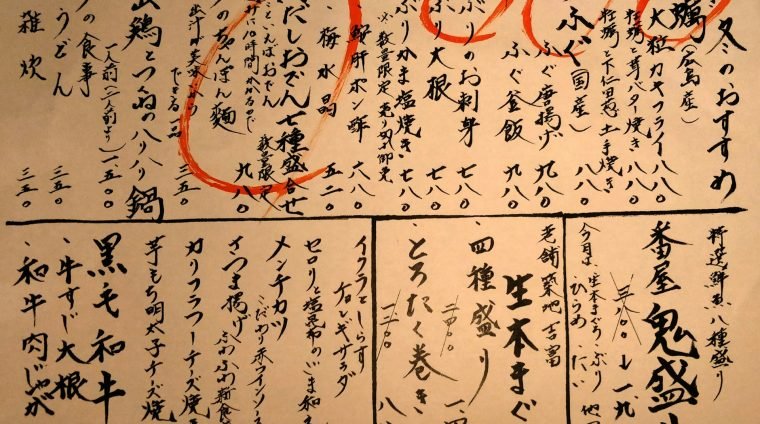 冬のおすすめ
(広島産)
大粒カキフライ 八八〇
牡蠣と茸バター焼き 八八〇
牡蠣と下仁田葱土手焼き 八八〇
ふぐ(国産)
ふぐ唐揚げ 九八〇
ふぐ釜飯 九八〇
ぶりのお刺身 七八〇
ぶり大根 七八〇
ぶりかま塩焼き 七八〇
※数量限定 売り切れ御免
鮟肝ポン酢 六八〇
梅水晶 五二〇
だしおでん七種盛合せ 九八〇
数量限定
のちゃんぽん麺
出汁が美味いから
できる一品
三五〇
鶏とつみのハリハリ鍋
一人前(二人前より) 一、五〇〇
の食事
うどん 三五〇
雑炊 三五〇
特選鮮魚八種盛り
番屋鬼盛り
三八〇〇 → 一九
今月は 生本まぐろ ぶり
ひらめ たい 他
老舗築地吉富
生本まぐ
、四種盛り
二四〇〇
、とろたく巻き
イクラとしらす
チョレギサラダ
セロリと塩昆布のごま和え
メンチカツ
こだわり赤ワインソース
さつま揚げ
ふわふわ新食
カリフラワーチーズ焼
芋もち明太子チーズ焼
黒毛和牛
、牛すじ大根
、和牛肉じゃが